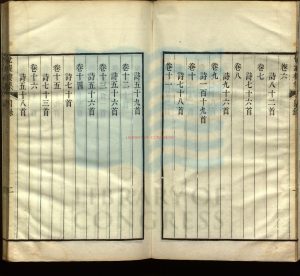 卷六
詩八十二首
卷七
詩七十六首
卷八
詩九十六首
卷九
詩一百十九首
卷十
詩七十八首
卷十一
詩五十九首
卷十二
詩五十六首
卷十三
詩五十六首
卷十四
詩七十首
卷十五
詩七十三首
卷十六
詩五十八首
LIBRARY OF
CONGRESS